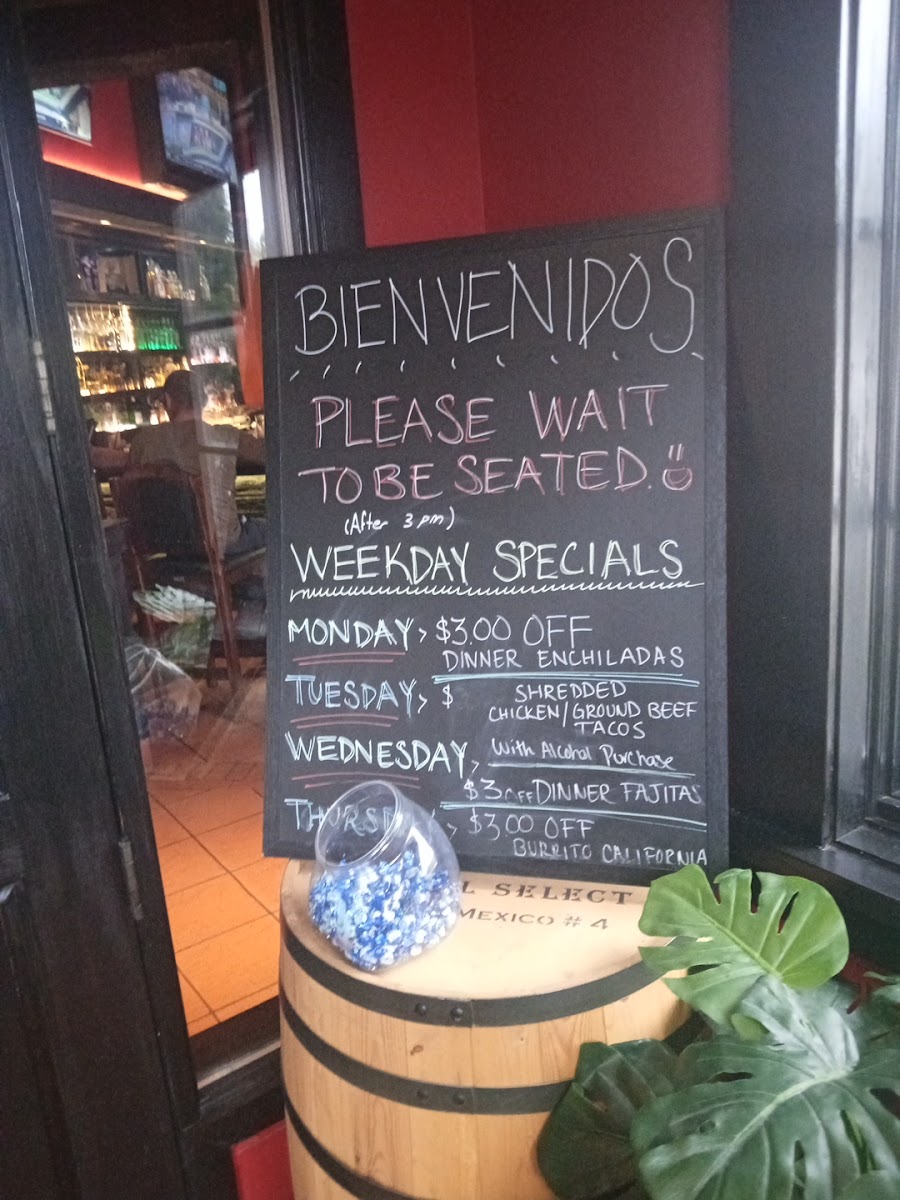 BIENVENIDOS
PLEASE WAIT
TO BE SEATED.
(After 3 pm)
WEEKDAY SPECIALS
MONDAY > $3.00 OFF
DINNER ENCHILADAS
TUESDAY > $ SHREDDED
CHICKEN/GROUND BEEF
TACOS
With Alcohol Purchase
WEDNESDAY >
$3 OFF DINNER FAJITAS
THURSDAY > $3.00 OFF
BURRITO CALIFORNIA
L SELECT
MEXICO # 4